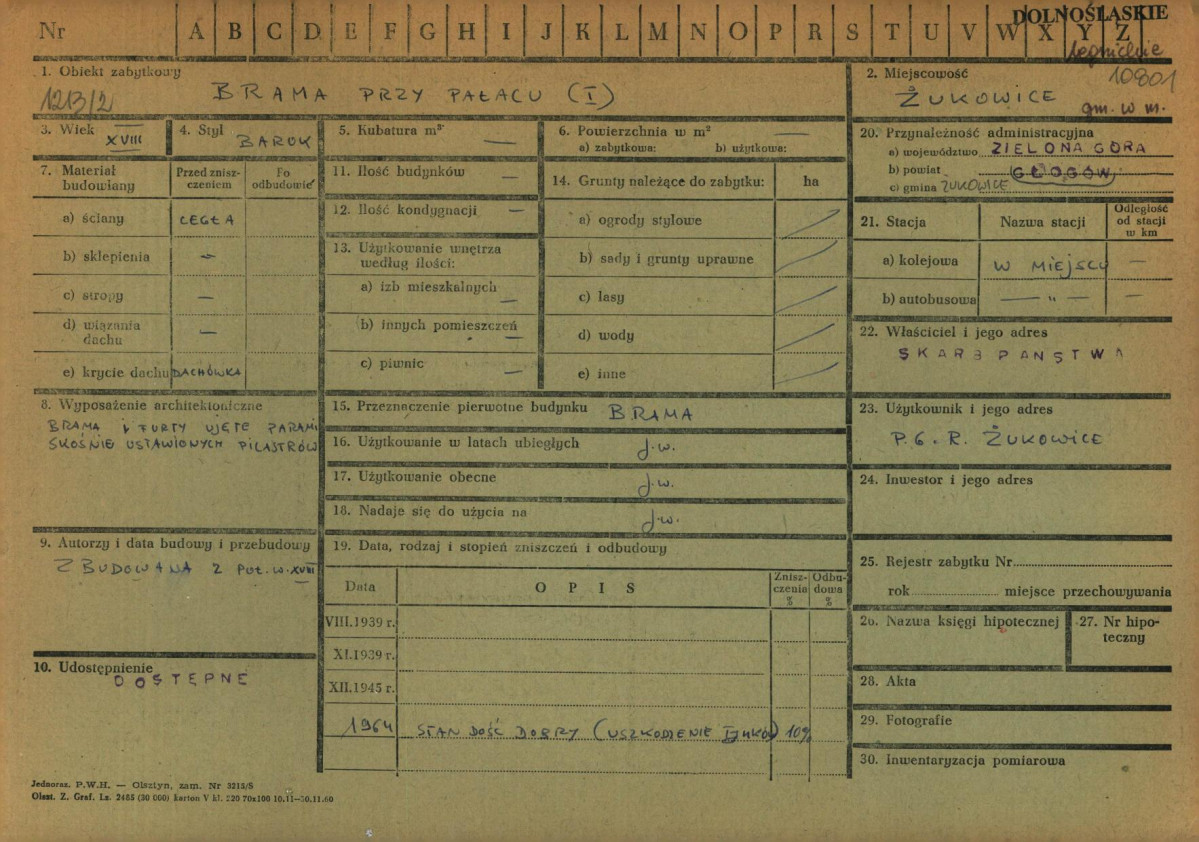 Nr A B C D E F G H I J K L M N O P R S T U V W X Y Z
DOLNOŚLĄSKIE
legnickie
10801
1. Obiekt zabytkowy
1213/2 BRAMA PRZY PAŁACU (I)
2. Miejscowość
ŻUKOWICE
gm. w m.
3. Wiek XVIII
4. Styl BAROK
5. Kubatura m³ —
6. Powierzchnia w m² —
a) zabytkowa: b) użytkowa:
20. Przynależność administracyjna
a) województwo ZIELONA GÓRA
b) powiat GŁOGÓW
c) gmina ŻUKOWICE
7. Materiał budowlany
Przed zniszczeniem
Po odbudowie
a) ściany CEGŁA
b) sklepienia —
c) stropy —
d) wiązania dachu —
e) krycie dachu DACHÓWKA
11. Ilość budynków —
12. Ilość kondygnacji —
13. Użytkowanie wnętrza
według ilości:
a) izb mieszkalnych —
b) innych pomieszczeń —
c) piwnic —
14. Grunty należące do zabytku: ha
a) ogrody stylowe
b) sady i grunty uprawne
c) lasy
d) wody
e) inne
21. Stacja
Nazwa stacji
Odległość od stacji w km
a) kolejowa W MIEJSCU —
b) autobusowa — " — —
22. Właściciel i jego adres
SKARB PAŃSTWA
8. Wyposażenie architektoniczne
BRAMA I FURTY UJĘTE PARAMI
SKOŚNIE USTAWIONYCH PILASTRÓW
15. Przeznaczenie pierwotne budynku BRAMA
16. Użytkowanie w latach ubiegłych j.w.
17. Użytkowanie obecne j.w.
18. Nadaje się do użycia na j.w.
23. Użytkownik i jego adres
P.G.R. ŻUKOWICE
24. Inwestor i jego adres
9. Autorzy i data budowy i przebudowy
ZBUDOWANA 2 POŁ. W. XVIII
19. Data, rodzaj i stopień zniszczeń i odbudowy
Data OPIS Zniszczenia % Odbudowa %
VIII.1939 r.
XI.1939 r.
XII.1945 r.
1964 STAN DOŚĆ DOBRY (USZKODZENIE 10%
25. Rejestr zabytku Nr
rok miejsce przechowywania
26. Nazwa księgi hipotecznej
27. Nr hipoteczny
10. Udostępnienie
DOSTĘPNE
28. Akta
29. Fotografie
30. Inwentaryzacja pomiarowa
Jednoraz. P.W.H. — Olsztyn, zam. Nr 3215/S
Olszt. Z. Graf. Lz. 2485 (30 000) karton V kl. 220 70x100 10.11—30.11.60